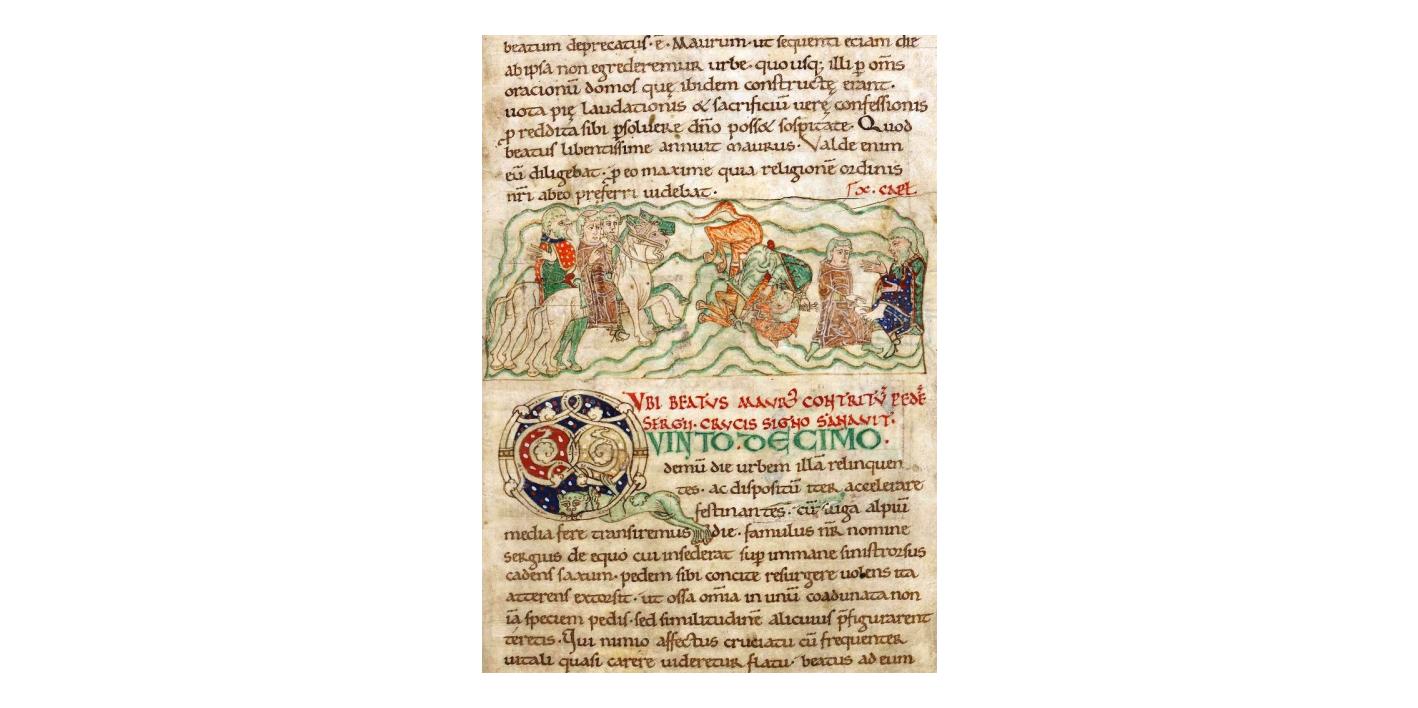 beatum deprecatus·ē· Maurum·ut sequenti eciam die
ab ipsa non egrederemur urbe· quousq; illi p om̄s
oracionū domos quę ibidem constructę erant·
uota pię laudationis & sacrificiū uerę confessionis
p reddita sibi psoluere dn̄o poss& sospitate· Quod
beatus libentissime annuit maurus· Valde enim
eū diligebat· p eo maxime quia religionē ordinis
nr̄i abeo preferri uidebat·
capł
VBI BEATVS MAVRꝰ CONTRITŪ PEDĒ
SERGII· CRVCIS SIGNO SANAVIT·
QVINTO·DECIMO·
demū die urbem illā relinquen
tes· ac dispositū iter accelerare
festinantes· cū iuga alpiū
media fere transiremus die· famulus nr̄ nomine
sergius de equo cui insederat sup immane sinistrorsus
cadens saxum· pedem sibi concite resurgere uolens ita
atterens extorsit· ut ossa om̄ia in unū coadunata non
iā speciem pedis· sed similitudinē alicuius p̄figurarent
teretis· Qui nimio affectus cruciatu cū frequenter
uitali quasi carere uideretur flatu· beatus ad eum